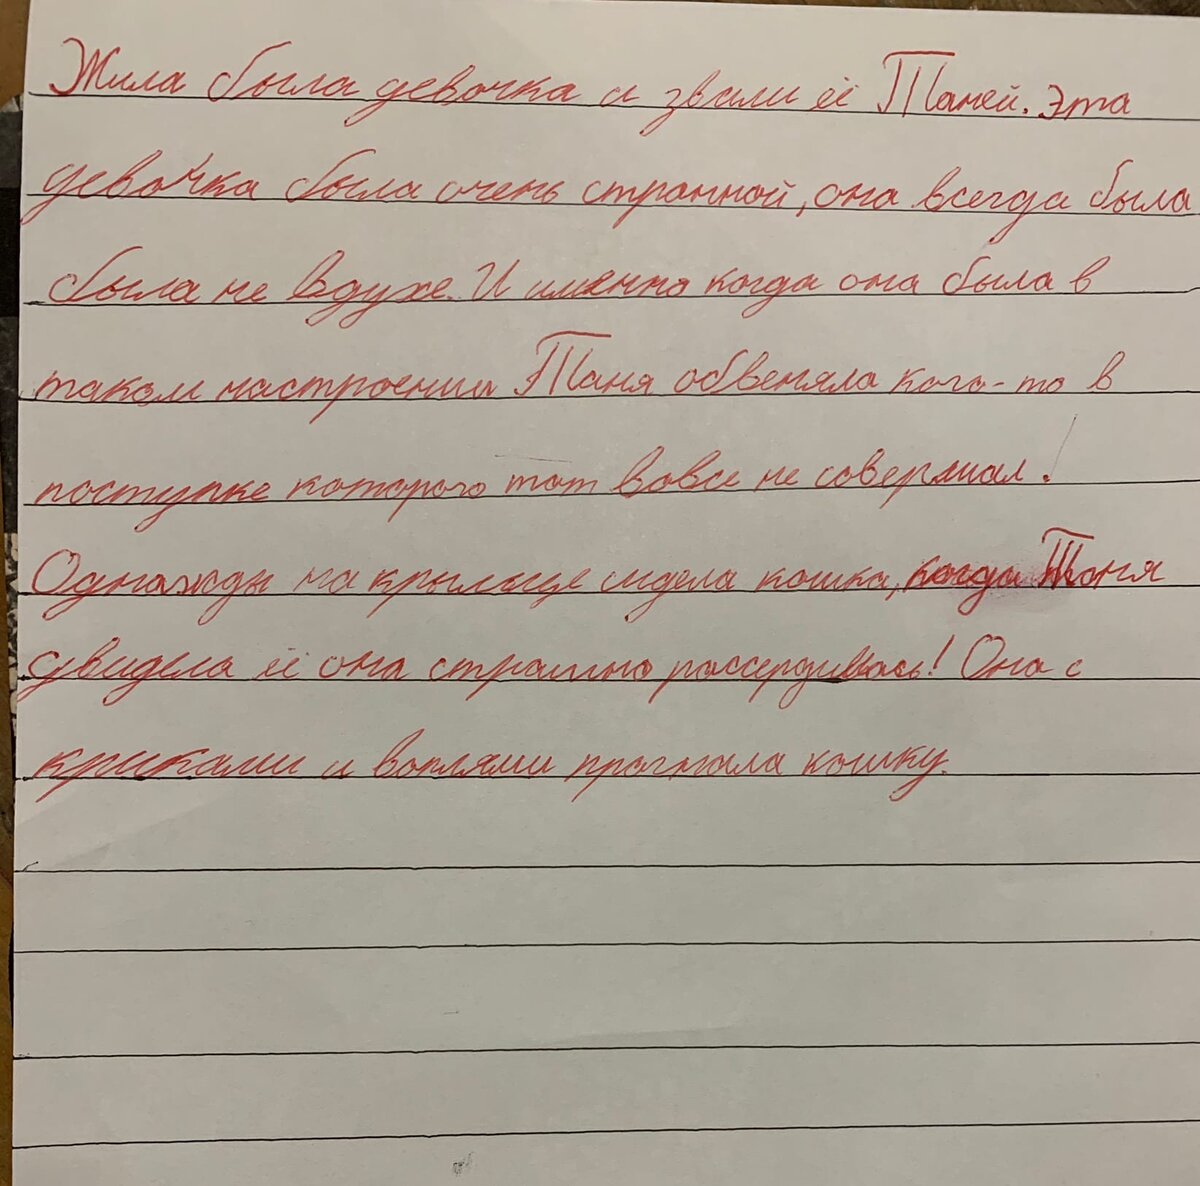 Жила была девочка и звали её Таней. Эта
девочка была очень странной, она всегда была
была не вдухе. И именно когда она была в
таком настроении Таня обвеняла кого-то в
поступке которого тот вовсе не совершал!
Однажды на крыльце сидела кошка, когда Таня
увидела её она страшно рассердилась! Она с
криками и воплями прогнала кошку.